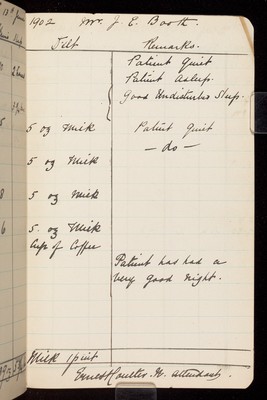 1902 Mr. J. E. Booth.
Diet Remarks.
Patient Quiet
Patient Asleep.
Good Undisturbed Sleep.
5 oz Milk Patient Quiet
5 oz Milk — do —
5 oz Milk
5 oz Milk
Cup of Coffee
Patient has had a
very good night.
Milk 1 pint
Ernest Coulter. N. attendant.